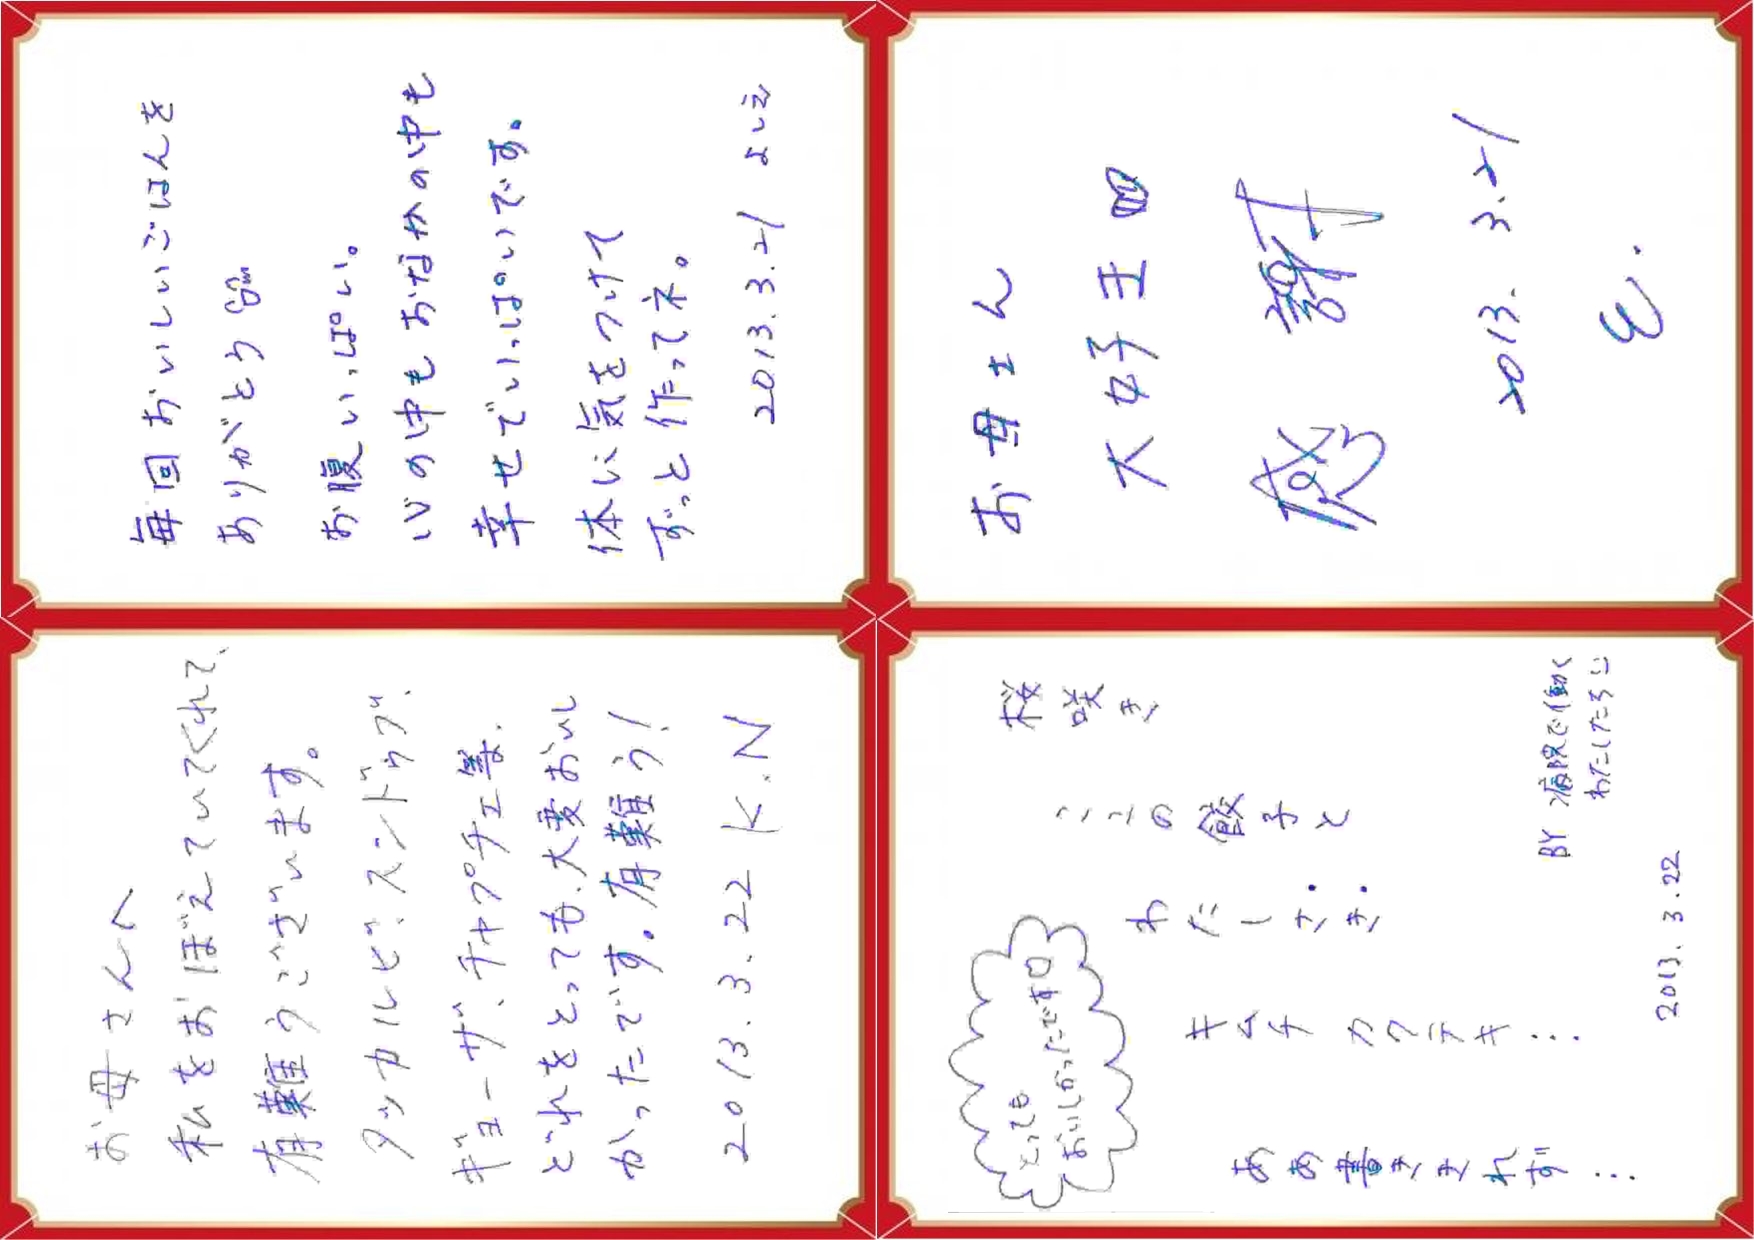 毎回おいしいごはんを
ありがとう
お腹いっぱい。
いの中もおなかの中も
幸せでいっぱいです。
体い気をつけて
ずっと作ってネ。
2013.3.21 よしえ
お母さん
大好王
感謝
2013. 3.21
E.
お母さんへ
私をおぼえていてくれて、
有難うございます。
タッカルビ、スンドゥブ、
ギョーザ、チャプチェ等、
どれをとっても、大変おいし
かったです。有難う!
2013.3.22 K.N
桜咲き
ここの餃子と
わたしさき
キムチ カクテキ...
ああ書ききれず...
とっても
おいしかったです♡
BY 病院で働く
わたしたちに
2013.3.22